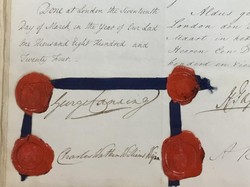 Done at London the Seventeenth
Day of March in the Year of Our Lord
One thousand Eight Hundred and
Twenty Four.
George Canning
Charles Watkin Williams Wynn
Aldus
London
Maart in het
Heeren Een
honderd en
A